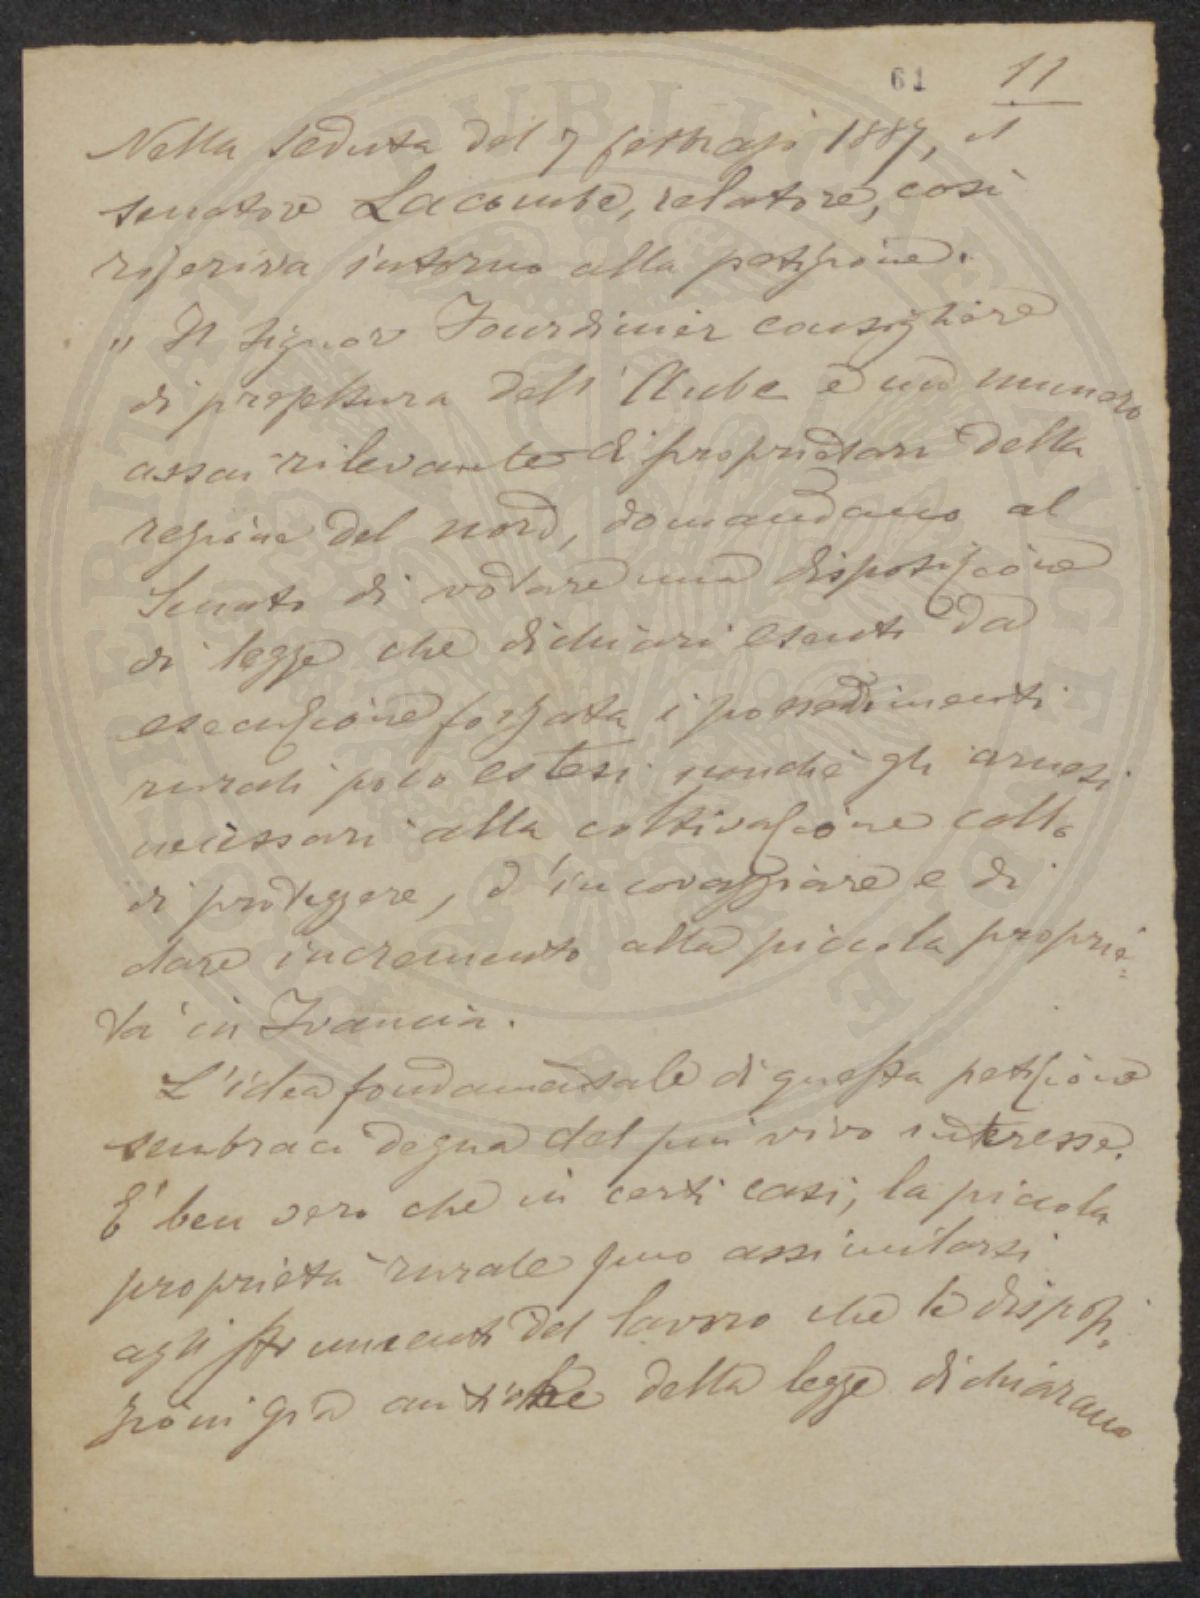 61 11
Nella seduta del 7 febbrajo 1887, il
senatore Lacombe, relatore, così
riferiva intorno alla petizione.
"Il signor Fourdinier consigliere
di prefettura dell'Aube e un numero
assai rilevante di proprietari della
regione del nord, domandano al
Senato di votare una disposizione
di legge che dichiari esenti da
esecuzione forzata i possedimenti
rurali poco estesi nonchè gli arnesi
necessari alla coltivazione colla
di proteggere, d'incoraggiare e di
dare incremento alla piccola proprie=
tà in Francia.
L'idea fondamentale di questa petizione
sembraci degna del più vivo interesse.
E' ben vero che in certi casi, la piccola
proprietà rurale può assimilarsi
agli strumenti del lavoro che le disposi=
zioni già antiche della legge dichiarano